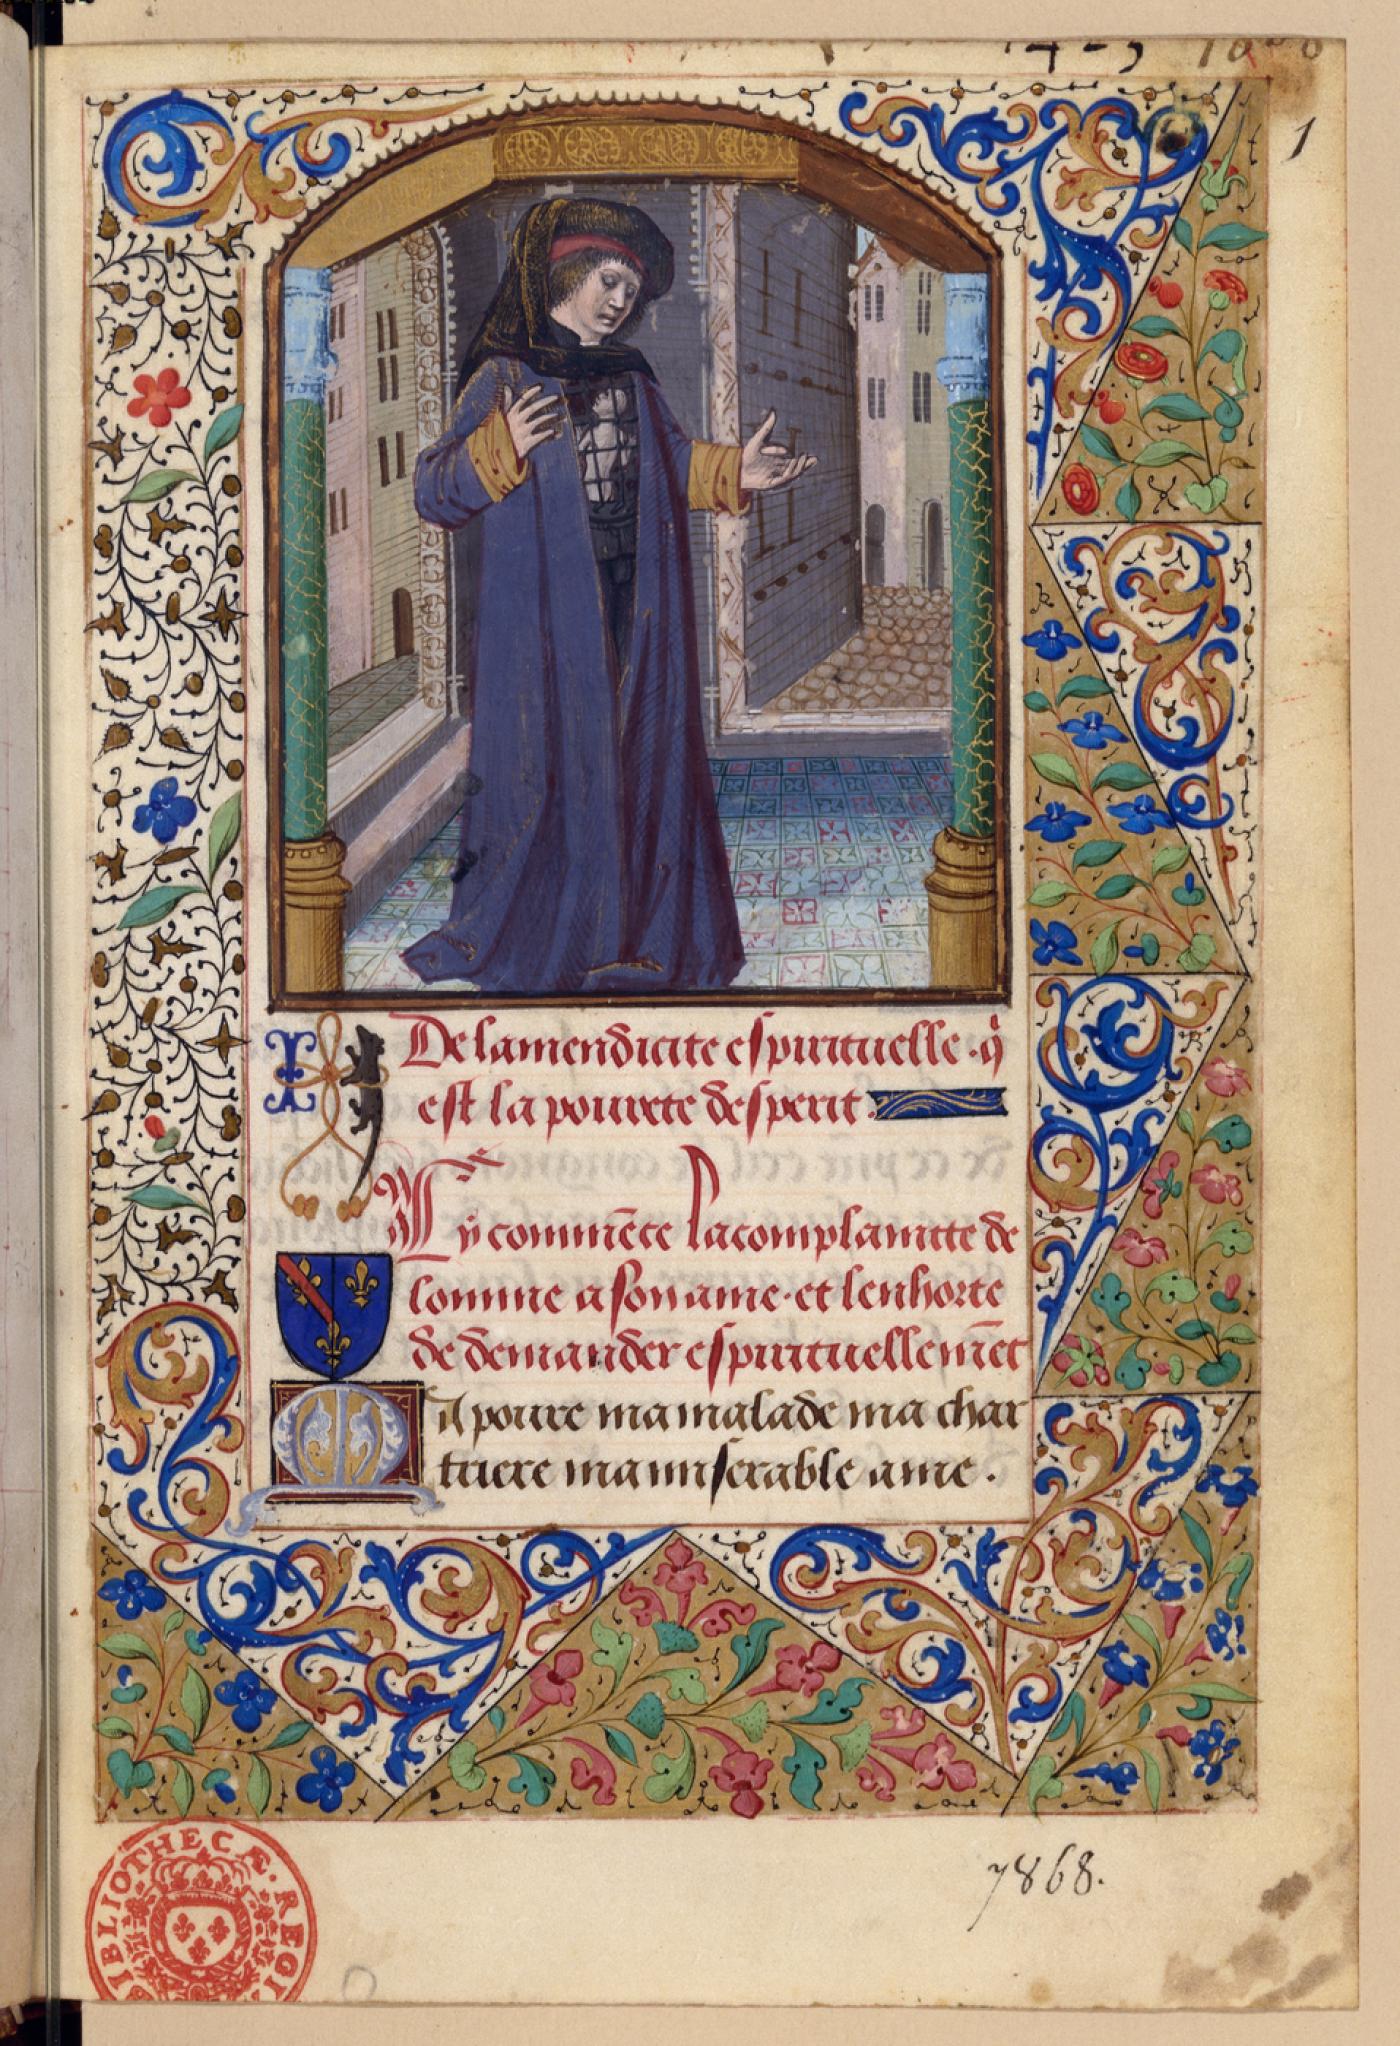 1
De la mendicite espirituelle · q̇
est la pourete desperit ·
Cy commēce la complaintte de
lomme a son ame · et lenhorte
de demander espirituellemēt
Ma poure ma malade ma char
triere ma miserable ame ·
7868.
BIBLIOTHECÆ REGI